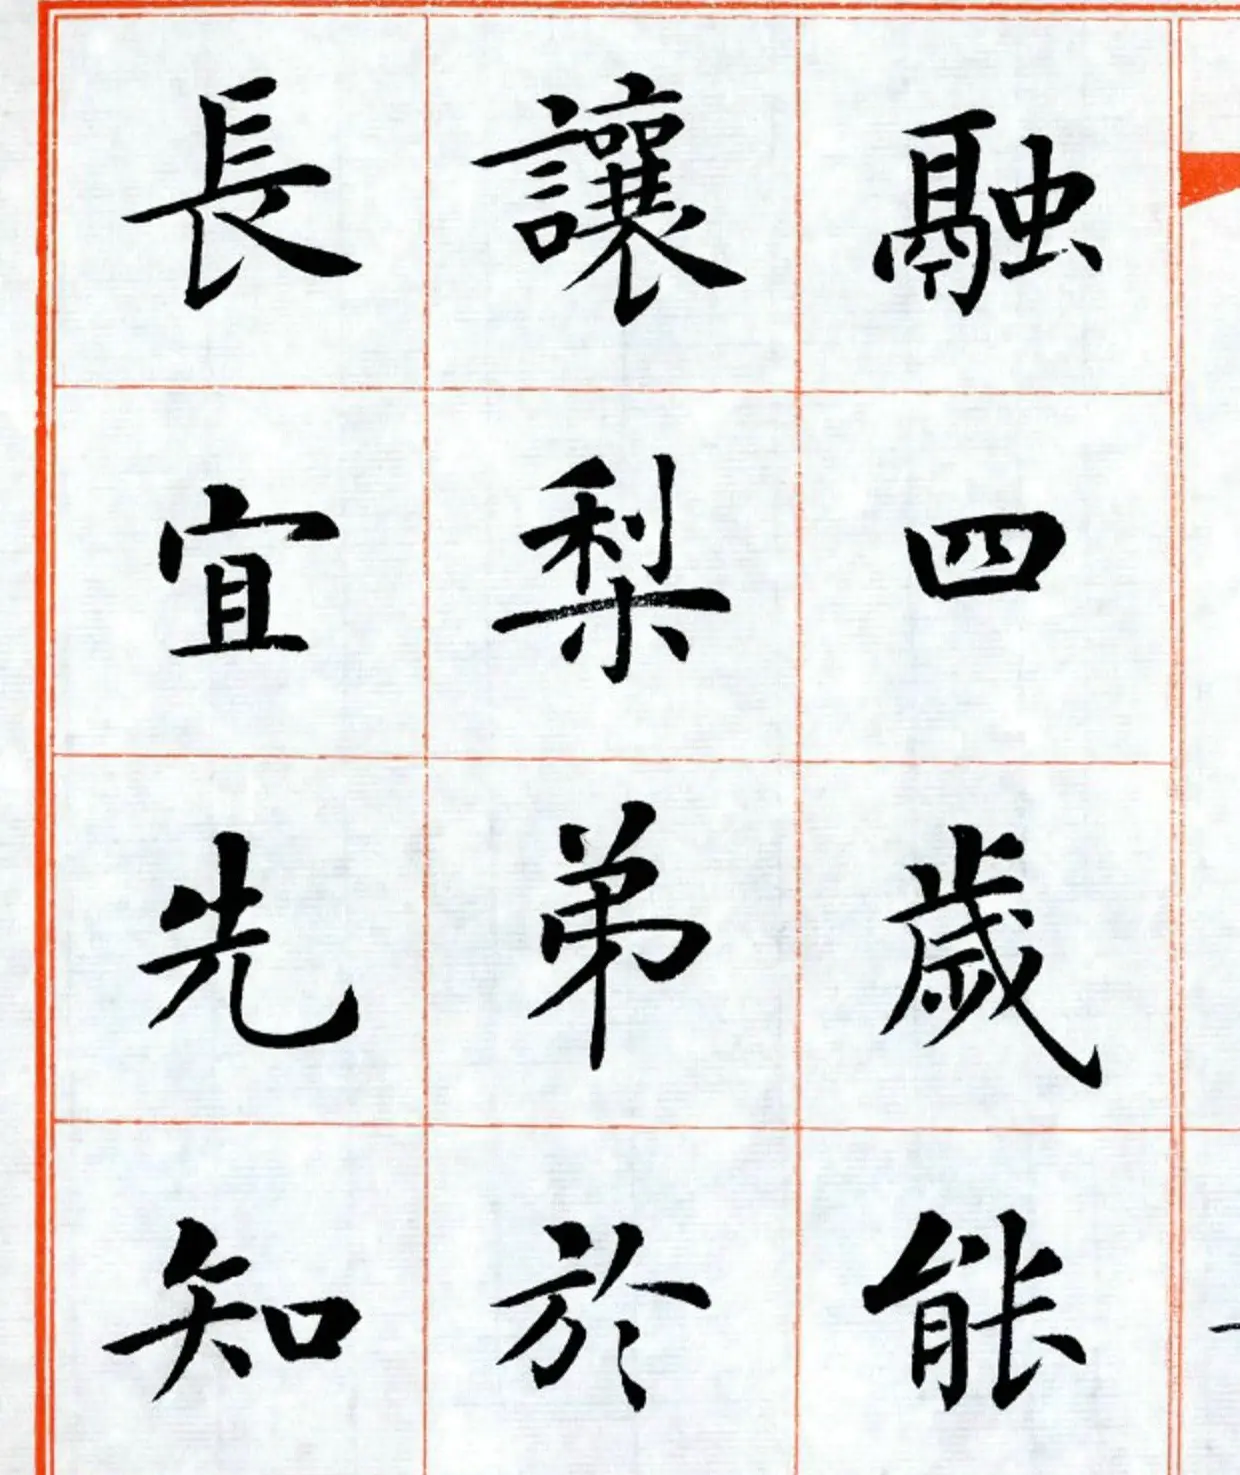 融四歲能
讓梨弟於
長宜先知